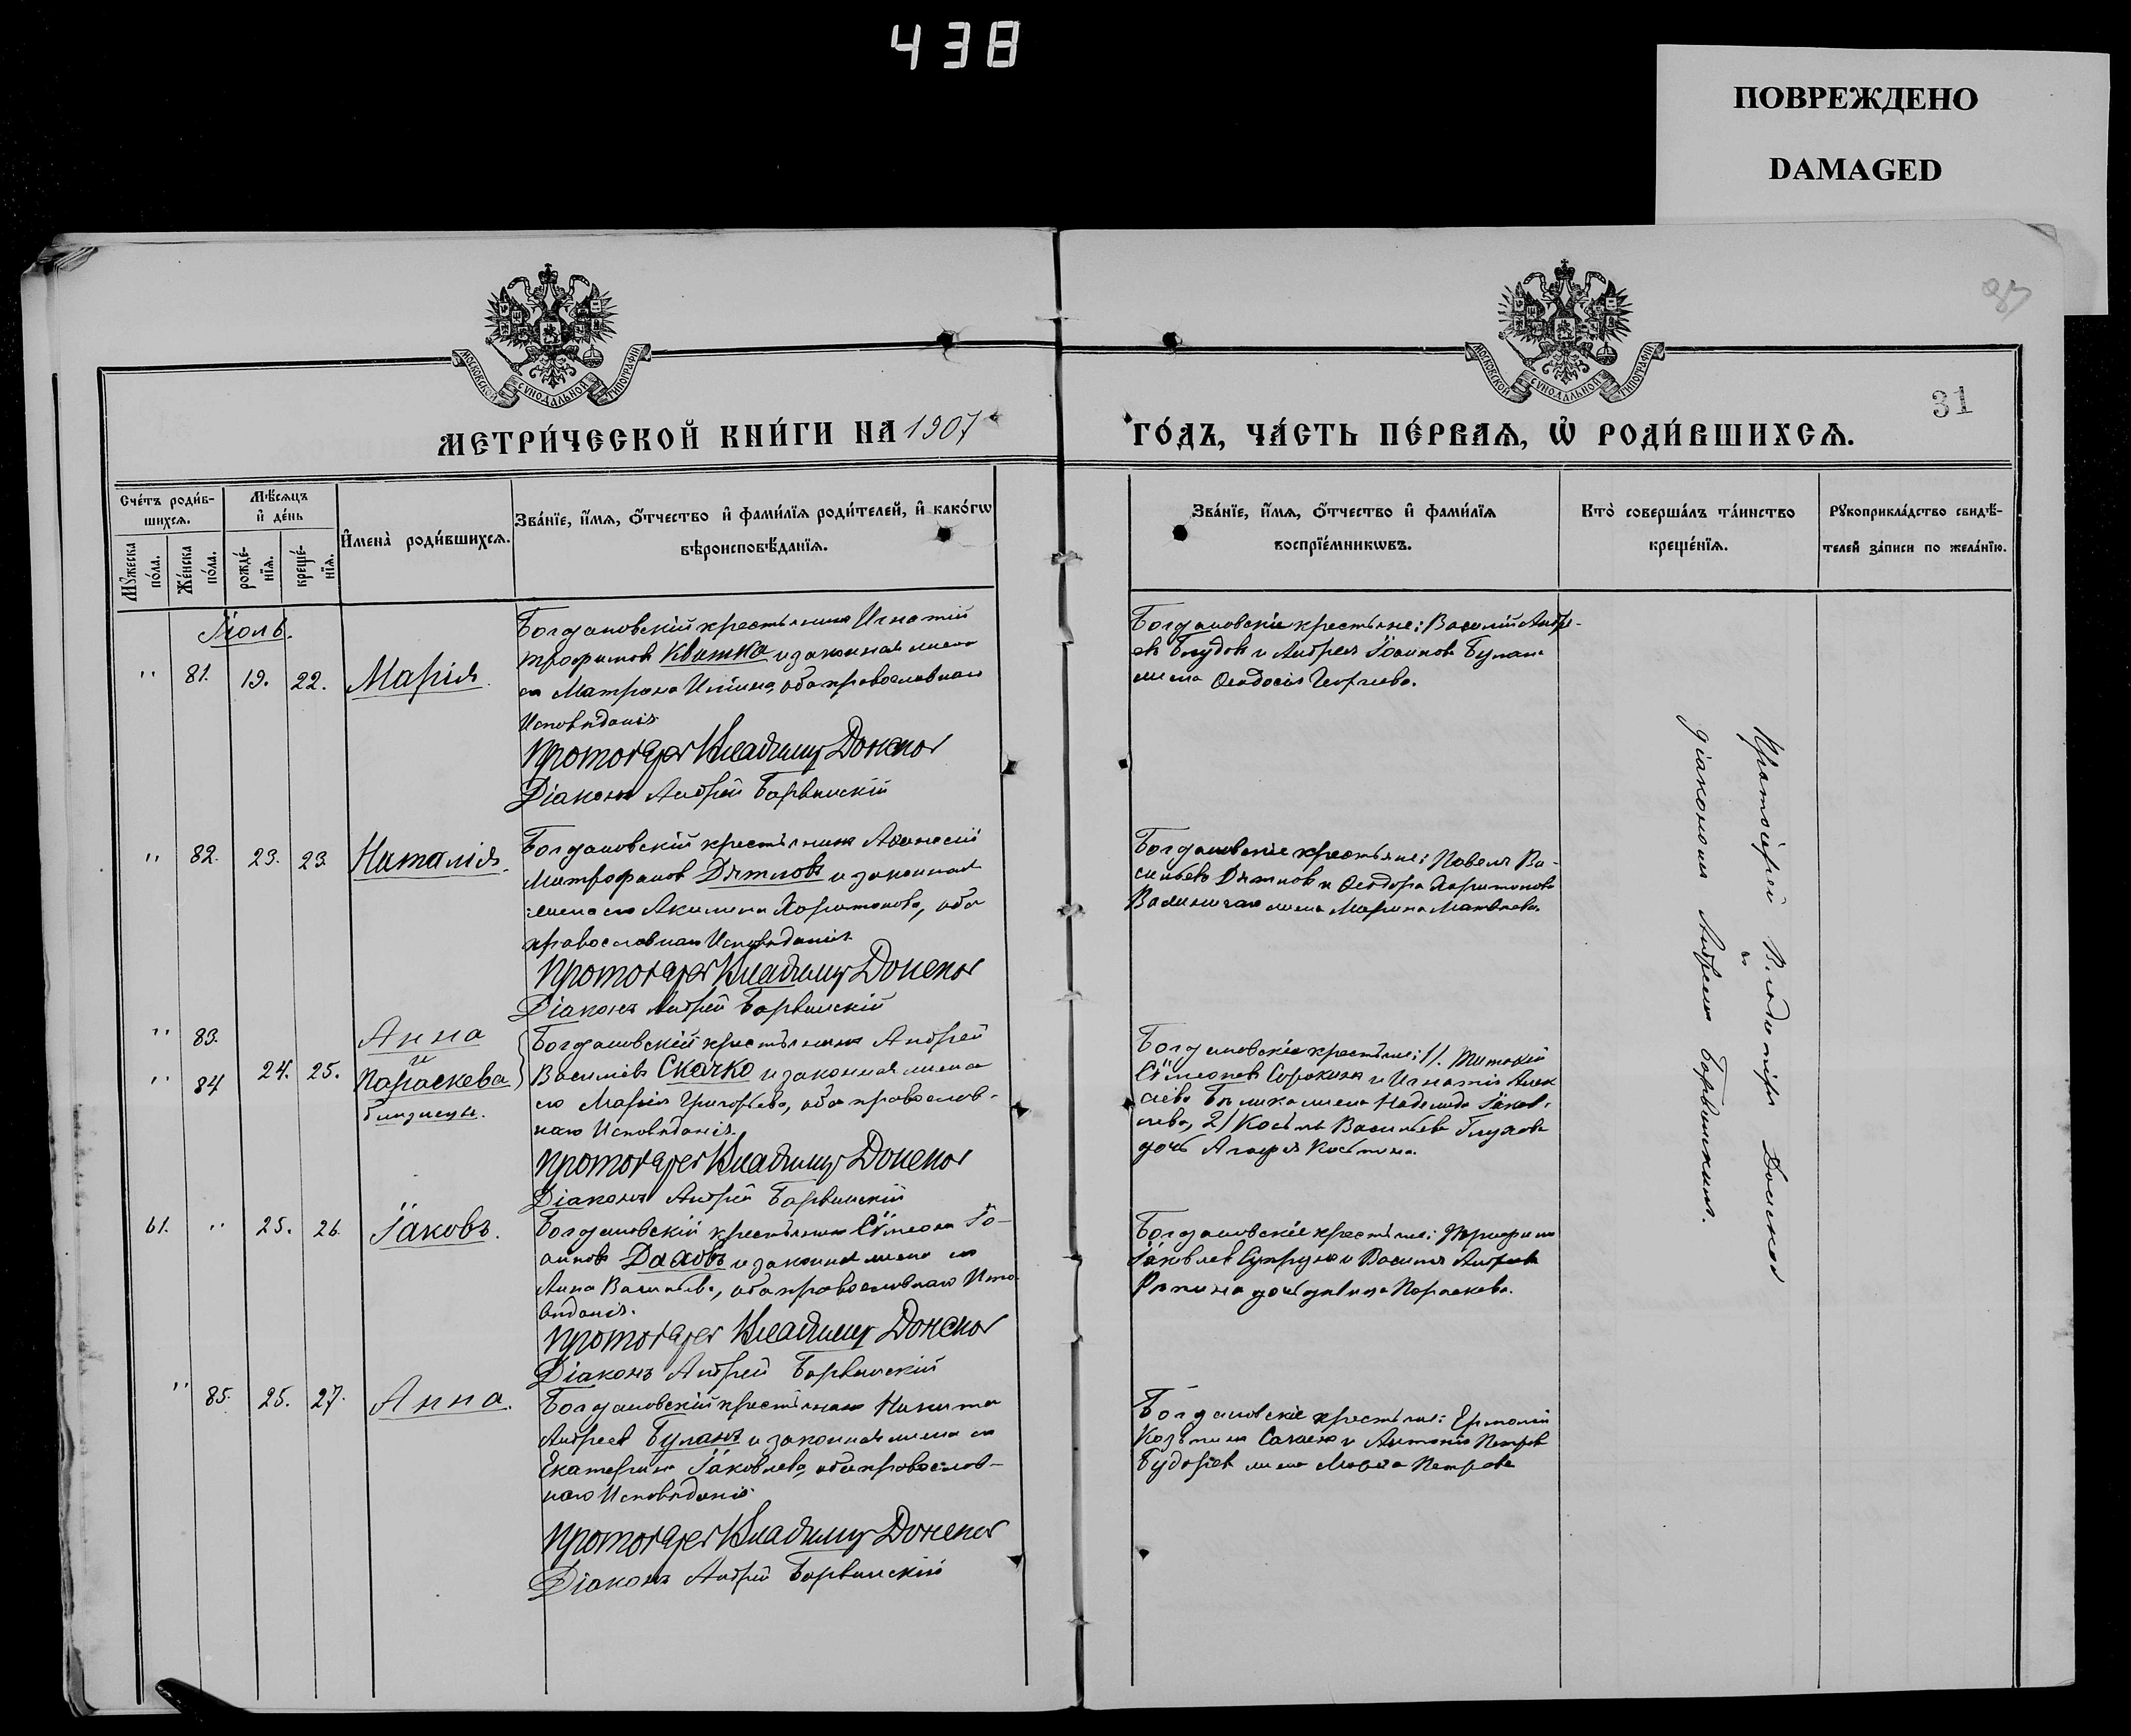 438
ПОВРЕЖДЕНО
DAMAGED
31
МОСКОВСКОЙ СѴНОДАЛЬНОЙ ТИПОГРАФІИ
МОСКОВСКОЙ СѴНОДАЛЬНОЙ ТИПОГРАФІИ
МЕТРИ́ЧЕСКОЙ КНИ́ГИ НА 1907
ГО́ДЪ, ЧА́СТЬ ПЕ́РВАѦ, Ѡ҆ РОДИ́ВШИХСѦ.
Сче́тъ роди́в-
шихсѧ.
Мꙋжеска по́ла.
Же́нска по́ла.
Мѣ́сѧцъ
и҆ де́нь
рожде́-
нїѧ.
креще́-
нїѧ.
И҆мена̀ роди́вшихсѧ.
Зва́нїе, и҆́мѧ, ѻ҆́тчество и҆ фами́лїѧ роди́телей, и҆ како́гѡ
вѣроисповѣ́данїѧ.
Зва́нїе, и҆́мѧ, ѻ҆́тчество и҆ фами́лїѧ
воспрїе́мникѡвъ.
Кто̀ соверша́лъ та́инство
креще́нїѧ.
Рꙋкоприкла́дство свидѣ́-
телей за́писи по жела́нїю.
Іюль.
" 81. 19. 22. Марія.
Богдановскій крестьянинъ Игнатій
Трофимовъ Квитка и законная жена
его Матрона Ильина, оба православнаго
Исповѣданія
Протоіерей Владимиръ Донской
Діаконъ Андрей Барвинскій
Богдановскіе крестьяне: Василій Андре-
евъ и Андрея Іоаннова Булан
жена Ѳеодосія Георгиева.
" 82. 23. 23 Наталія.
Богдановскій крестьянинъ Аѳанасій
Митрофановъ Дятловъ и законная
жена его Акилина Харитонова, оба
православнаго Исповѣданія
Протоіерей Владимиръ Донской
Діаконъ Андрей Барвинскій
Богдановскіе крестьяне: Павелъ Ва-
сильевъ Дятловъ и Ѳеодора Харитонова
жена Марина Матвѣева.
" 83. Анна
и
" 84 24. 25. Параскева
близнецы.
Богдановскій крестьянинъ Андрей
Васильевъ Скачко и законная жена
его Марія Григорьева, оба православ-
наго Исповѣданія.
Протоіерей Владимиръ Донской
Діаконъ Андрей Барвинскій
Богдановскіе крестьяне: 1).
Сѵмеоновъ Сорокинъ и Игнатія Алек
сіева жена Надежда Іаков-
лева, 2) Косьмы Васильева Глухова
дочь Агафія Косьмина.
61. " 25. 26. Іаковъ.
Богдановскій крестьянинъ Сѵмеонъ Іо-
анновъ Даховъ и законная жена его
Анна Васильева, оба православнаго Испо-
вѣданія.
Протоіерей Владимиръ Донской
Діаконъ Андрей Барвинскій
Богдановскіе крестьяне: Трофимъ
Іаковлевъ Супрунъ и Василія Андреева
Рѣпина дочь дѣвица Параскева.
" 85. 25. 27. Анна.
Богдановскій крестьянинъ Никита
Андреевъ Буланъ и законная жена его
Екатерина Іаковлева, оба православ-
наго Исповѣданія
Протоіерей Владимиръ Донской
Діаконъ Андрей Барвинскій
Богдановскіе крестьяне: Ермолай
Козьминъ и Антонія Петрова
жена Марѳа Петрова
Протоіерей Владиміръ Донской
съ
діакономъ Андреемъ Барвинскимъ.